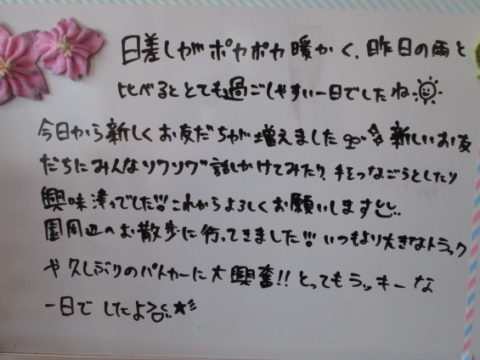 日差しがポカポカ暖かく、昨日の雨と
比べるととても過ごしやすい一日でしたね
今日から新しくお友だちが増えました 新しいお友
だちにみんなソワソワ 話しかけてみたり、手をつなごうとしたり
興味津々でした!!! これからよろしくお願いします
園周辺のお散歩に行ってきました!!! いつもより大きなトラック
や久しぶりのパトカーに大興奮!! とってもラッキーな
一日でしたよ